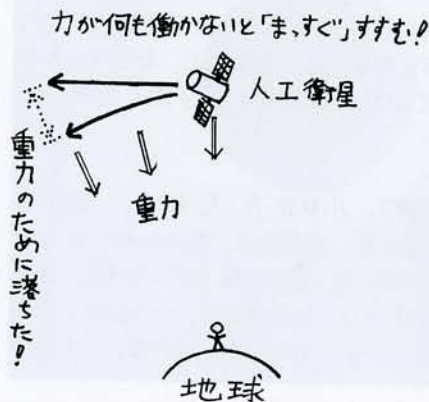 力が何も働かないと「まっすぐ」すすむ!
人工衛星
重力
重力のために落ちた!
地球